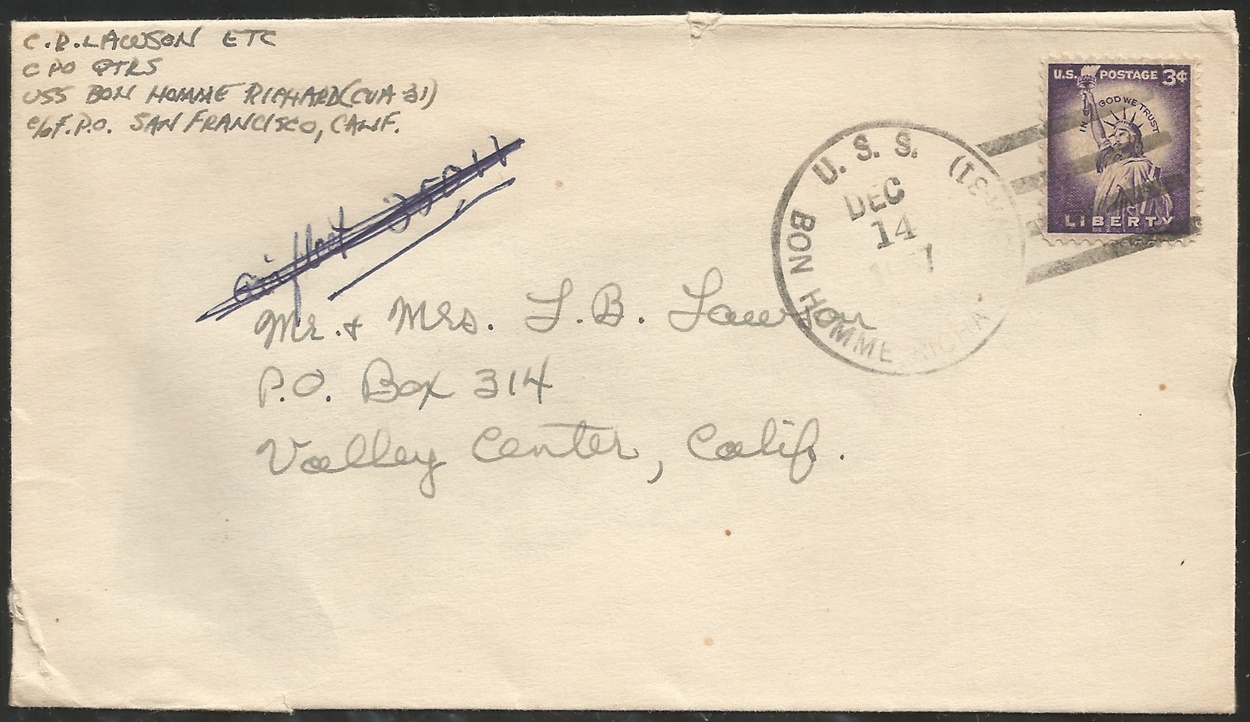 C.R. LAWSON ETC
CPO QTRS
USS BON HOMME RICHARD (CVA 31)
c/o F.P.O. SAN FRANCISCO, CALIF.
U.S. POSTAGE 3¢
IN GOD WE TRUST
LIBERTY
U. S. S.
BON HOMME RICHA
DEC
14
Mr. & Mrs. L.B. Lawson
P.O. Box 314
Valley Center, Calif.